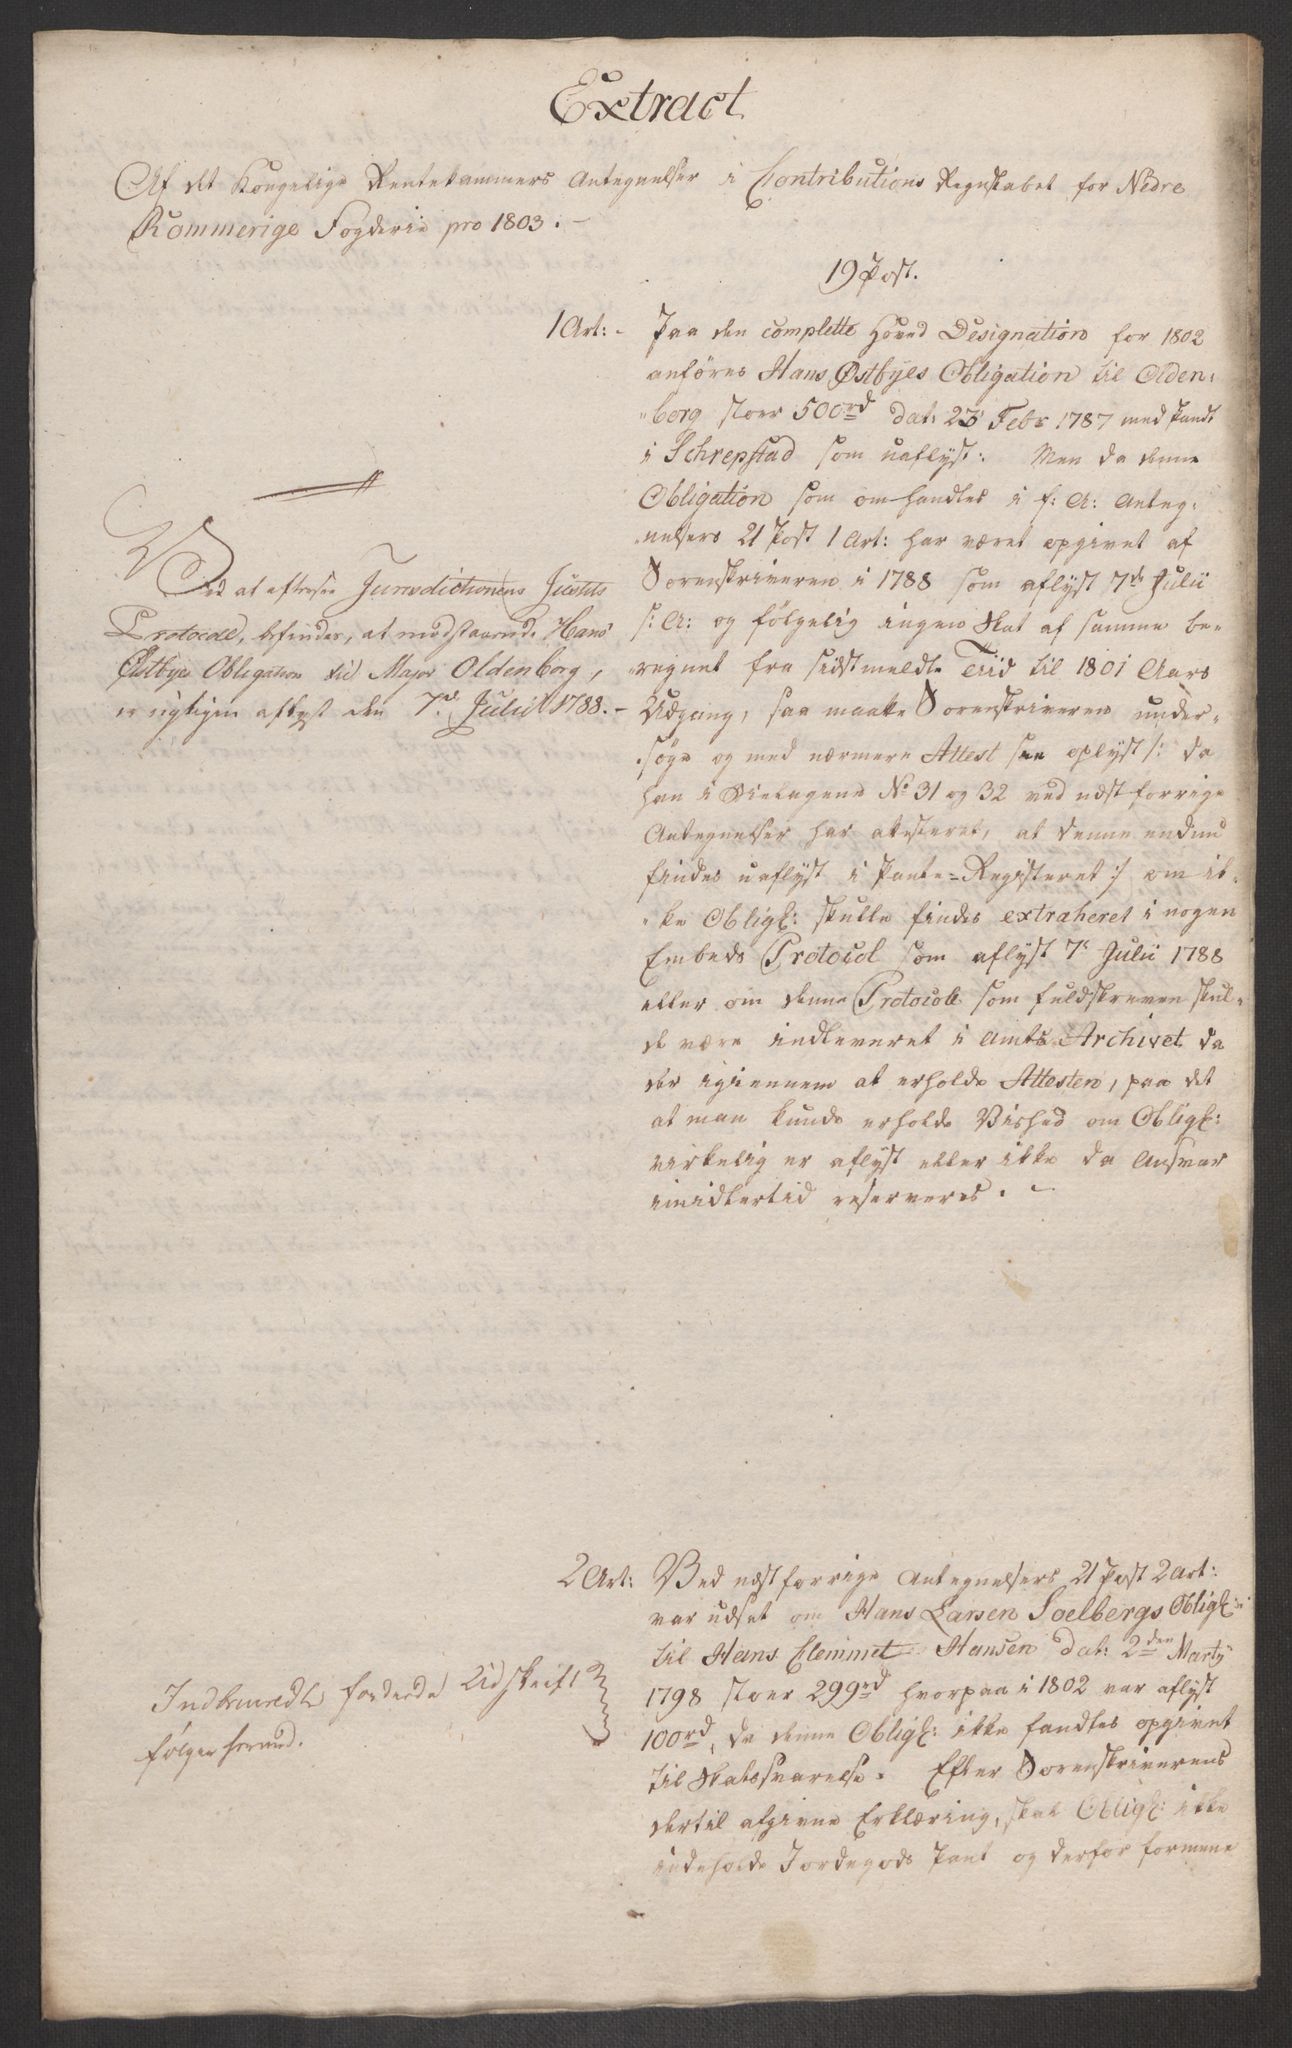 Extract
Af det Kongelige Rentekammers Antegnelser i Contributions Regnskabet for Nedre
Rommerige Fogderie pro 1803. -
19 Post.
1 Art: - Paa den complette Hoved Designation for 1802
anføres Hans Østbyes Obligation til Olden:
borg stoer 500rd dat: 23 Febr 1787 med Pandt
i Schrepstad som uaflyst: Men da denne
Obligation som omhandles i f: A: Anteg:
nelsers 21 Post 1 Art: har været opgivet af
Sorenskriveren i 1788 som aflyst 7de Julii
s: A: og følgelig ingen Skat af samme be-
regnet fra sidstmeldte Tiid til 1801 Aars
Udgang, saa maatte Sorenskriveren under-
søge og med nærmere Attest see oplyst /: da
han i Bielagene No 31 og 32 ved næst forrige
Antegnelser har atesteret, at denne endnu
findes uaflyst i Pante-Registeret :/ om ik-
ke Obligt: skulle findes extraheret i nogen
Embeds Protocol som aflyst 7de Julii 1788
eller om denne Protocoll som fuldskreven skul-
de være indleveret i Amts Archivet da
der igiennem at erholde Attesten, paa det
at man kunde erholde Vished om Obligt:
virkelig er aflyst eller ikke da Ansvar
imidlertid reserveres. -
Ved at eftersee Jurisdictionens Justits
Protocoll, befindes, at modstaaende Hans
Østbyes Obligation til Major Oldenborg,
er rigtigen aflyst den 7de Julii 1788. -
2 Art: Ved næst forrige Antegnelsers 21 Post 2 Art:
var udsat om Hans Larsen Soelbergs Obligt:
til Hans Clemmet Hansen dat: 2den Marty
1798 stoer 299rd hvorpaa i 1802 var aflyst
100rd, da denne Obligt: ikke fandtes opgivet
til Skatsvarelse. Efter Sorenskriverens
dertil afgivne Erklæring, skal Obligt: ikke
indeholde Jordegods Pant og derfor formene
Indbemeldte forderede Udskrift
følger herved.